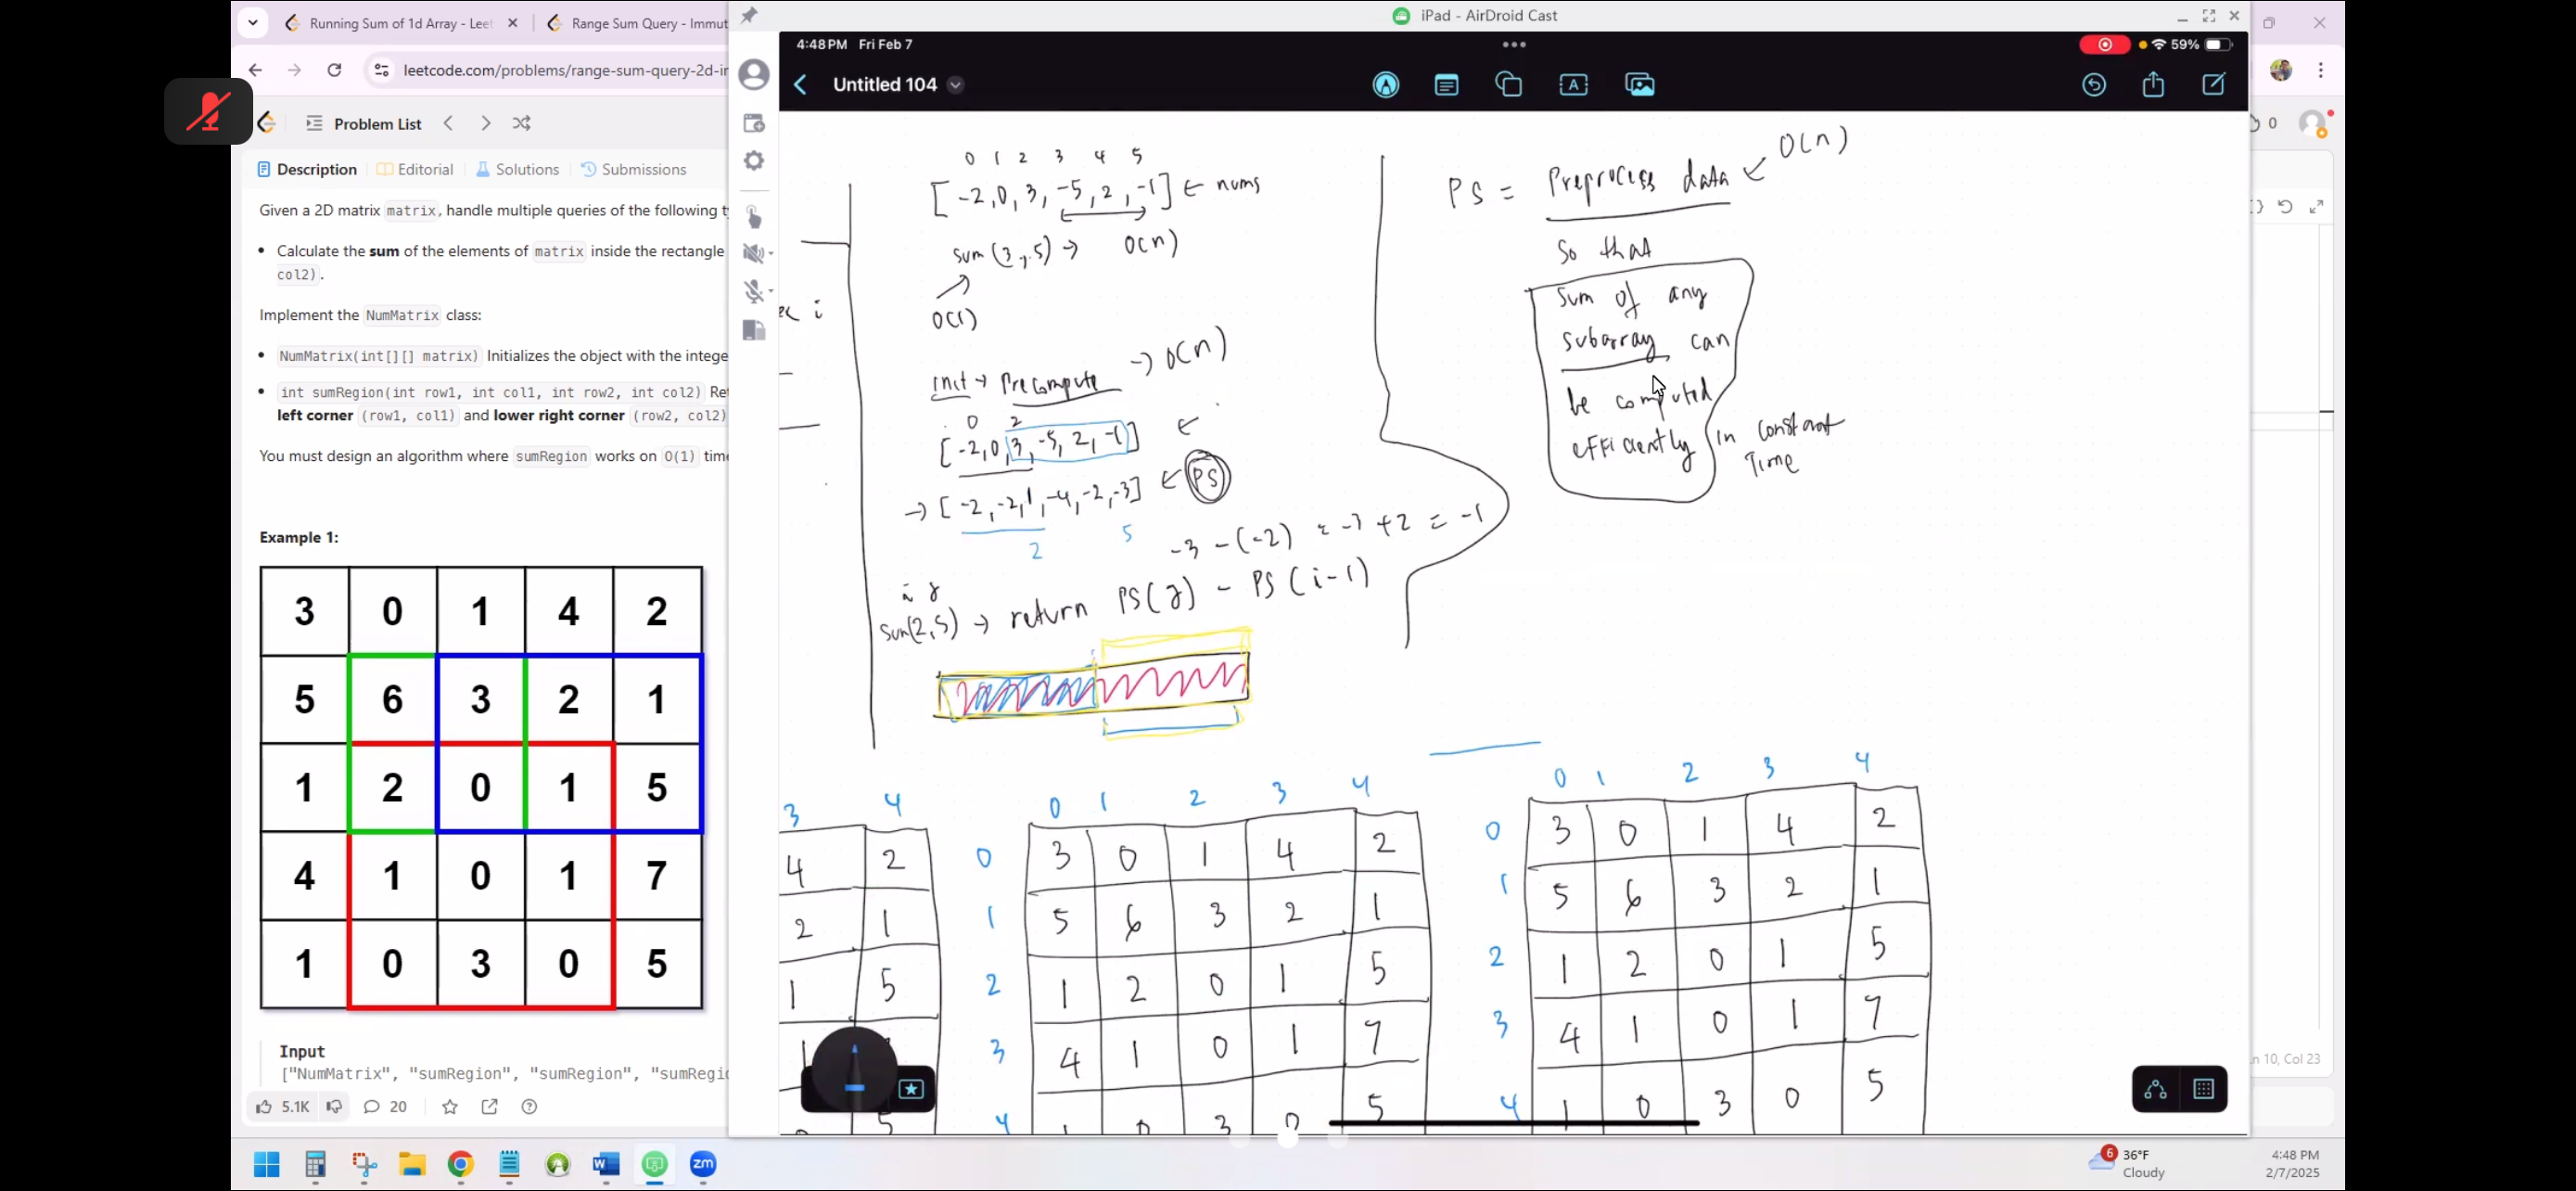 Running Sum of 1d Array - Leet
Range Sum Query - Immut
iPad - AirDroid Cast
leetcode.com/problems/range-sum-query-2d-ir
4:48 PM Fri Feb 7
59%
Untitled 104
Problem List
0
Description
Editorial
Solutions
Submissions
Given a 2D matrix matrix, handle multiple queries of the following t
• Calculate the sum of the elements of matrix inside the rectangle
col2).
Implement the NumMatrix class:
• NumMatrix(int[][] matrix) Initializes the object with the intege
• int sumRegion(int row1, int col1, int row2, int col2) Ret
left corner (row1, col1) and lower right corner (row2, col2)
You must design an algorithm where sumRegion works on O(1) time
Example 1:
3 0 1 4 2
5 6 3 2 1
1 2 0 1 5
4 1 0 1 7
1 0 3 0 5
Input
["NumMatrix", "sumRegion", "sumRegion", "sumRegi
5.1K
20
0 1 2 3 4 5
[-2,0,3,-5,2,-1] ← nums
sum(3,5) → O(n)
O(1)
init → Precompute → O(n)
0 2
[-2,0,3,-5,2,-1] ←
→ [-2,-2,1,-4,-2,-3] ← PS
2 5
-3 -(-2) = -3 +2 = -1
i j
sum(2,5) → return PS(j) - PS(i-1)
PS = Preprocess data ← O(n)
So that
Sum of any
subarray can
be computed
efficiently in constant
Time
3 4
4 2
2 1
1 5
0 1 2 3 4
0 3 0 1 4 2
1 5 6 3 2 1
2 1 2 0 1 5
3 4 1 0 1 7
4 1 0 3 0 5
0 1 2 3 4
0 3 0 1 4 2
1 5 6 3 2 1
2 1 2 0 1 5
3 4 1 0 1 7
4 1 0 3 0 5
n 10, Col 23
zm
6
36°F
Cloudy
4:48 PM
2/7/2025